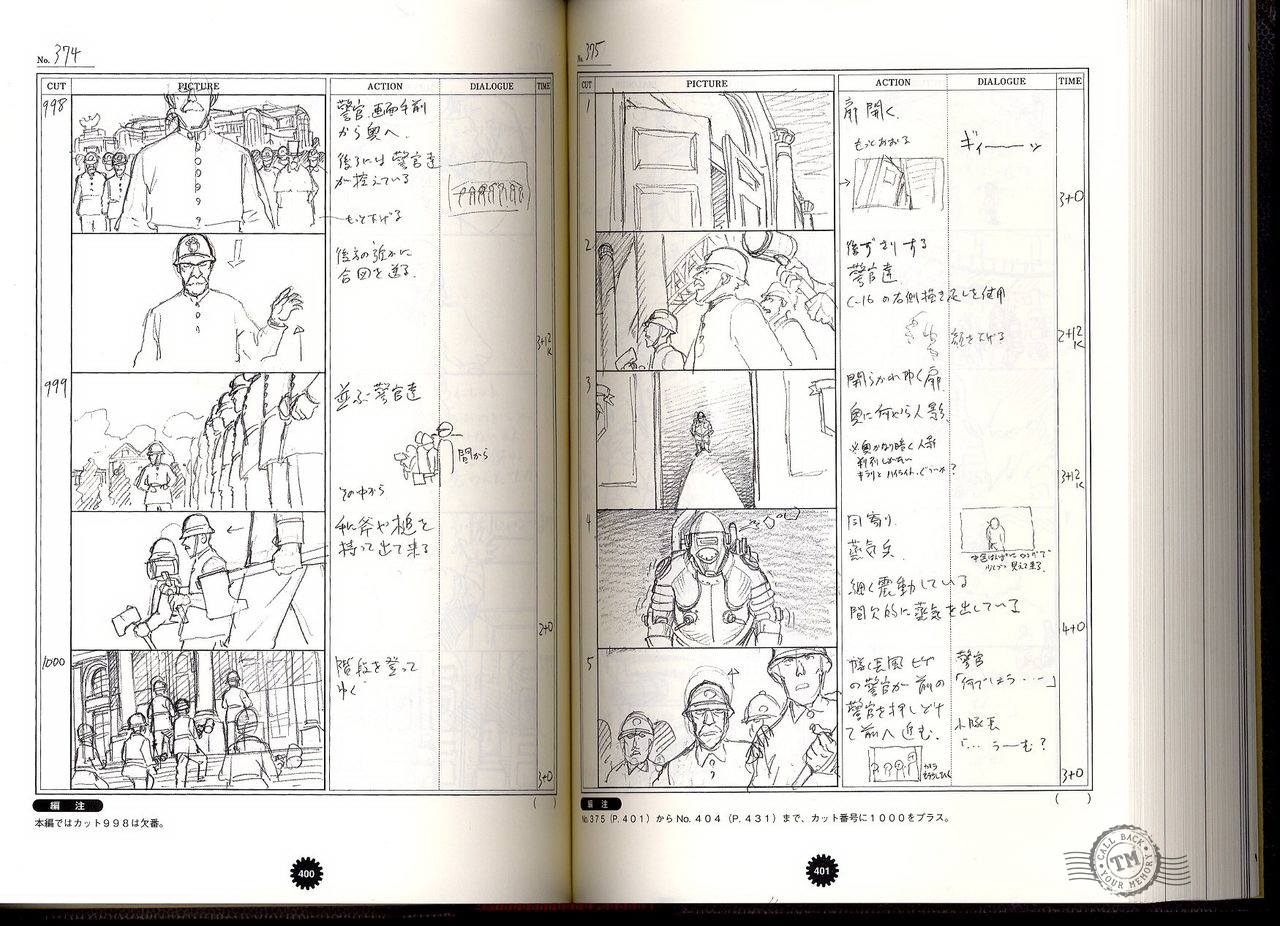 No. 374
CUT
PICTURE
ACTION
DIALOGUE
TIME
998
警官、画面手前
から奥へ。
後ろには警官達
が控えている
もっと下げる
後方の部下に
合図を送る。
3+12
K
999
並ぶ警官達
間から
その中から
手に斧や槌を
持って出て来る
2+0
1000
階段を登って
ゆく
3+0
( )
編 注
本編ではカット998は欠番。
400
No. 375
CUT
PICTURE
ACTION
DIALOGUE
TIME
1
扉開く。
ギィーーッ
もっとあおる
3+0
2
後ずさりする
警官達
C-16の右側描き足しを使用
顔を下げる
2+12
K
3
開らかれゆく扉
奥に何やら人影
3+12
K
4
同寄り。
蒸気兵
細く震動している
間欠的に蒸気を出している
4+0
5
警官
「何でしょう・・・」
の警官が前の
警官を押しどけ
て前へ進む。
小隊長
「… うーむ?
3+0
( )
編 注
No.375(P.401)からNo.404(P.431)まで、カット番号に1000をプラス。
401
CALL BACK
TM
YOUR MEMORY